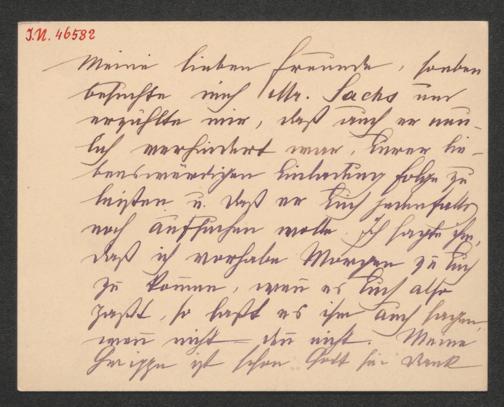 I.N. 46582
Meine lieben Freunde, soeben
besuchte mich Mr. Sachs und
erzählte mir, daß auch er neu-
lich verhindert war, Eurer lie-
benswürdigen Einladung folge zu
leisten u. daß er Euch jedenfalls
noch aufsuchen wolle. Ich sagte ihm,
daß ich vorhabe Morgen zu Euch
zu kommen, wenn es Euch also
paßt, so laßt es ihm auch sagen,
wenn nicht – dann nicht. Meine
Grippe ist schon Gott sei Dank